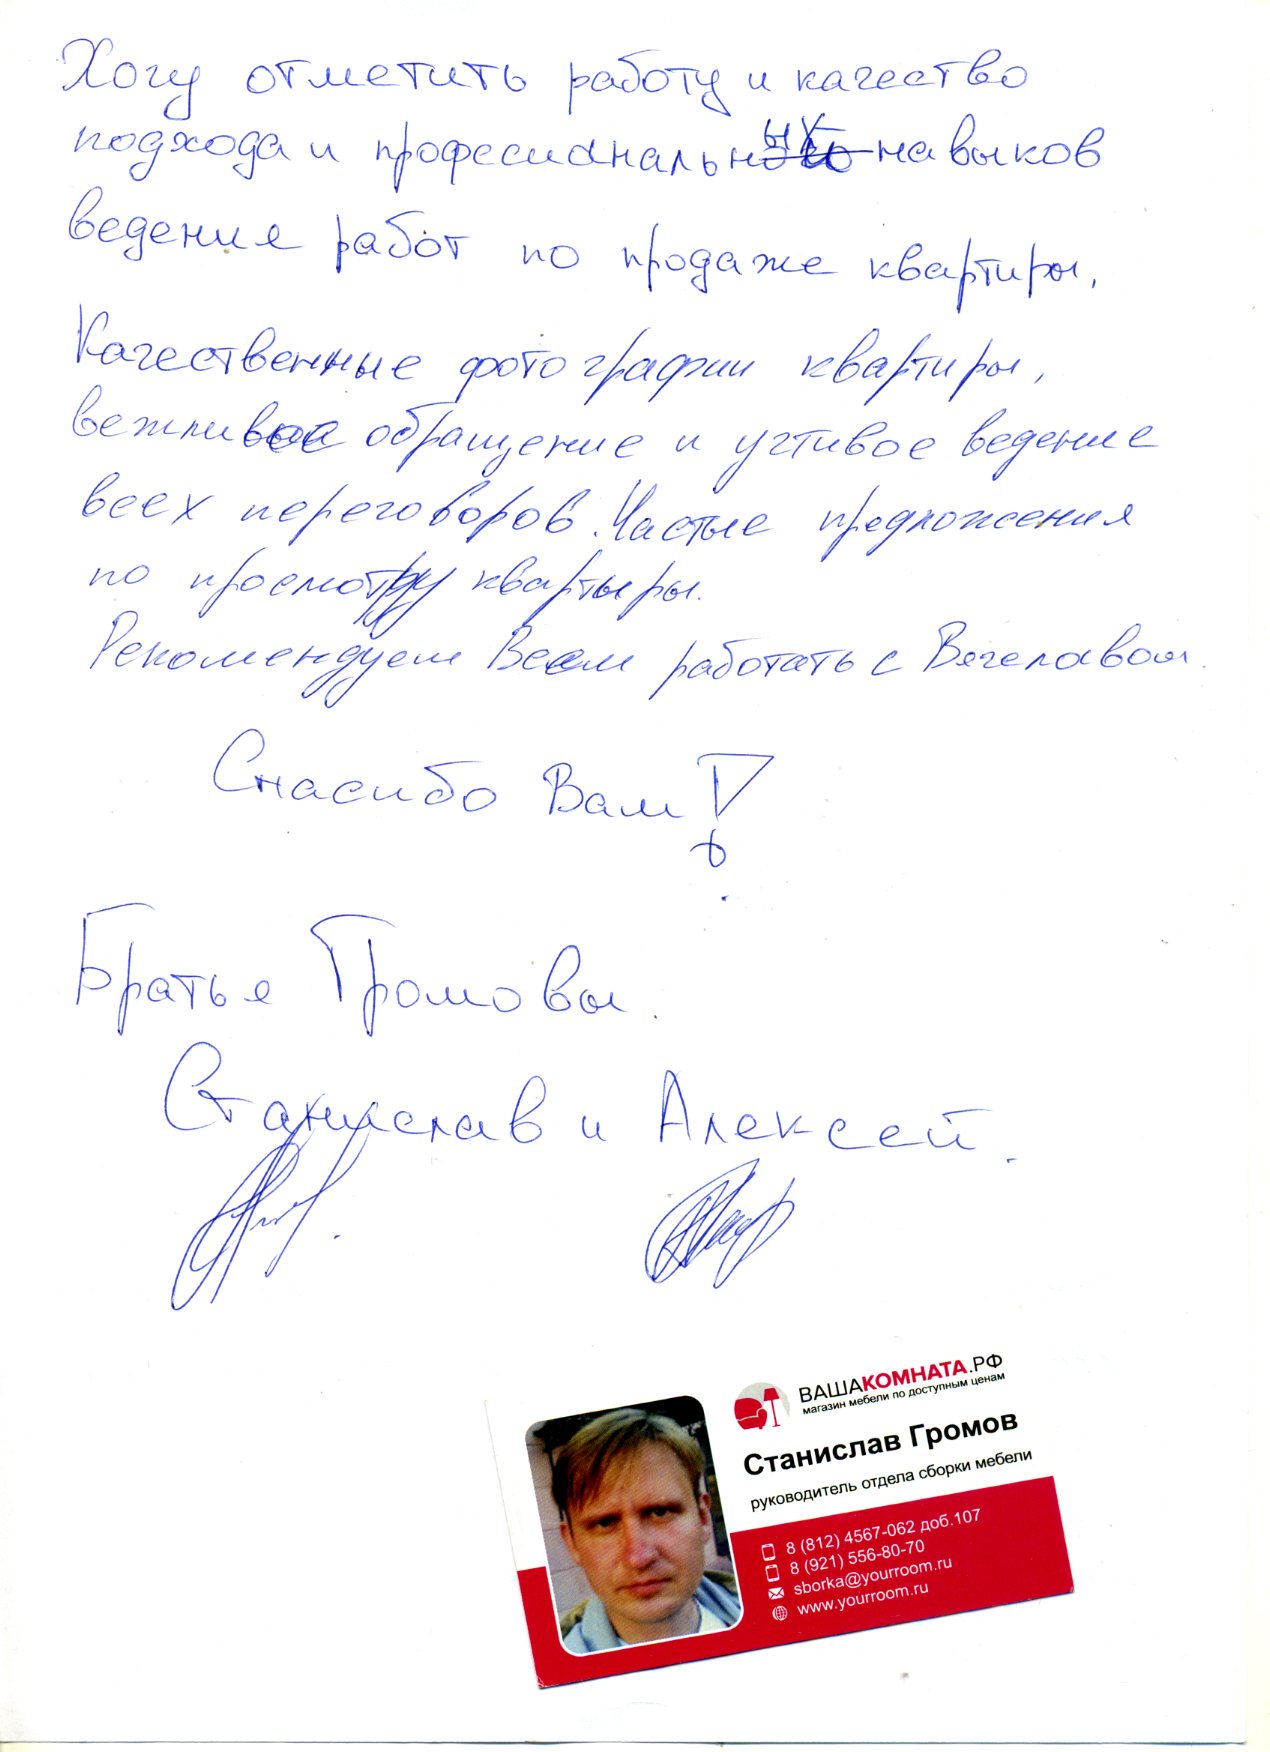 Хочу отметить работу и качество
подхода и професианальных навыков
ведения работ по продаже квартиры.
Качественные фотографии квартиры,
вежливое обращение и учтивое ведение
всех переговоров. Частые предложения
по просмотру квартыры.
Рекомендуем Всем работать с Вячелавом.
Спасибо Вам!
Братья Громовы.
Станислав и Алексей.
ВАШАКОМНАТА.РФ
магазин мебели по доступным ценам
Станислав Громов
руководитель отдела сборки мебели
8 (812) 4567-062 доб.107
8 (921) 556-80-70
sborka@yourroom.ru
www.yourroom.ru